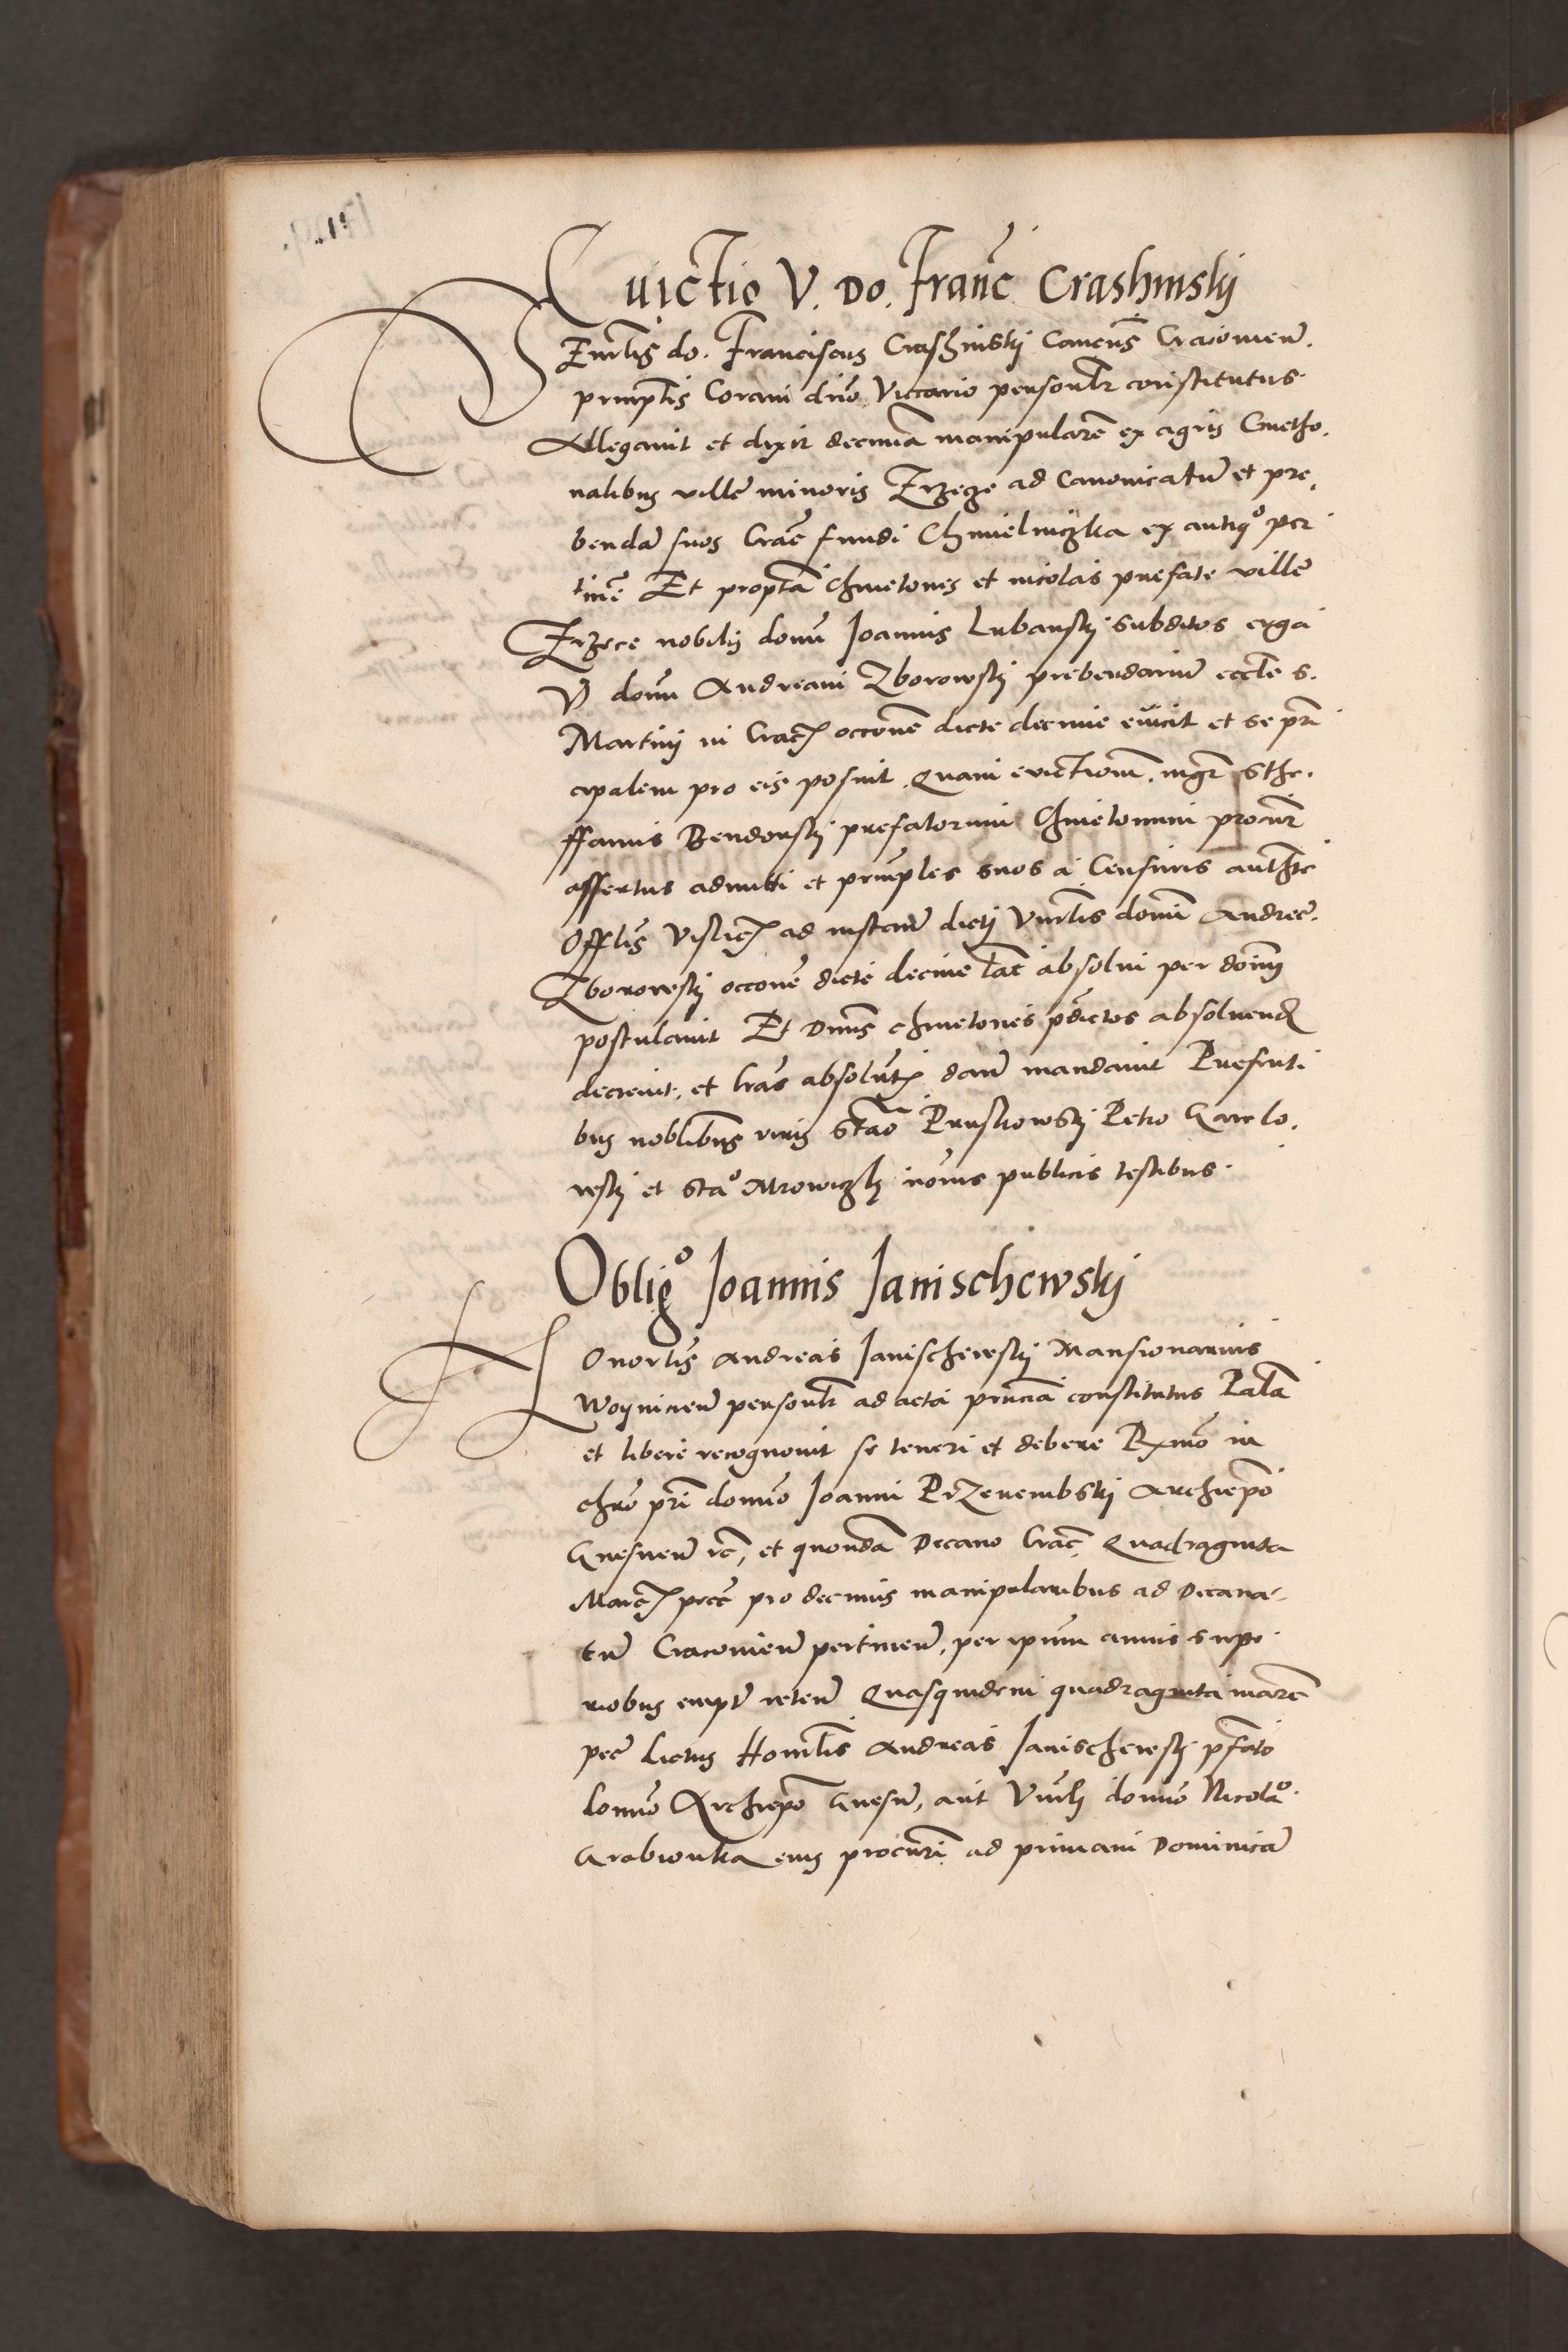 Euictio V. Do. Franc Crashinskÿ
VEnerlis do. Franciscus Crashinskÿ Canonus Cracouien.
principlis Coram dno Vicario personlr constitutus
Allegauit et dixit decimã manipularẽ ex agris Cmetho.
nalibus ville minoris Erzecze ad Canonicatũ et pre.
bendã suos Crac fundi Chmielniczka ex antiqº per
tinẽ Et proptã Chmetones et incolas prefate ville
Erzece nobilis domi Joannis Lubanskÿ subditos erga
V domi Andream Zborowskÿ prebendariũ eccle S.
Martinÿ in Crac occone dicte decime euicit et se prĩ
cipalem pro eis posuit Quam evictionem mgr Sthe.
ffanus Bendonskÿ prefatorum Chmetonum procur
assertus admitti et principles suos a Censuris authte
Offlis Vislic ad instanc dicti Vnerlis domi Andree
Zborowskÿ occone dicte decime lat absolui per domũ
postulauit Et Dnus chmetones pdictos absoluend
decreuit, et lras absolut dare mandauit Presenti
bus noblibus viris Stao Pruskowskÿ Petro Gawlo.
wskÿ et Staº Mrowiczkÿ notoriis publicis testibus.
Obligº Joannis Janischewskÿ
HOnorlis Andreas Janischewskÿ Mansionarius
Woynicien personlr ad acta prnciã constitutus Palã
et libere recognouit se teneri et debere Rxmo in
chro pri domno Joanni Przerembskÿ Archiepo
Gnesnen rc, et quondã Decano Crac Quadraginta
Marc pecc pro decimis manipularibus ad Decana-
tũ Cracouien pertinen, per ipsum annis supe
rioribus empt reten Quasquidem quadraginta marc
pec dictus Honorlis Andreas Janischewskÿ pfato
domno Archiepo Gnesn, aut Vnerli domno Nicolaº
Grabionka eius procuri ad primam Dominicã